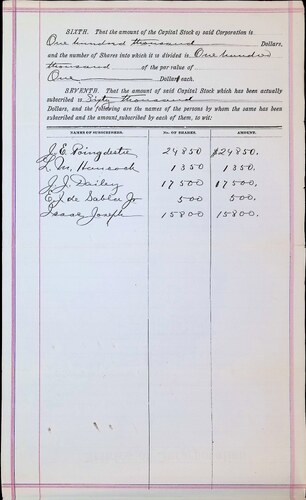 SIXTH. That the amount of the Capital Stock of said Corporation is
One hundred thousand Dollars,
and the number of Shares into which it is divided is One hundred
thousand of the par value of
One Dollar each.
SEVENTH. That the amount of said Capital Stock which has been actually
subscribed is Sixty thousand
Dollars, and the following are the names of the persons by whom the same has been
subscribed and the amount subscribed by each of them, to wit:
NAMES OF SUBSCRIBERS. No. OF SHARES. AMOUNT.
J. E. Poingdestre 24850 $24850.
L. M. Hancock 1350 1350.
J. J. Dailey 17500 17500.
E. J. de Sabla Jr 500 500.
Isaac Joseph 15800 15800.